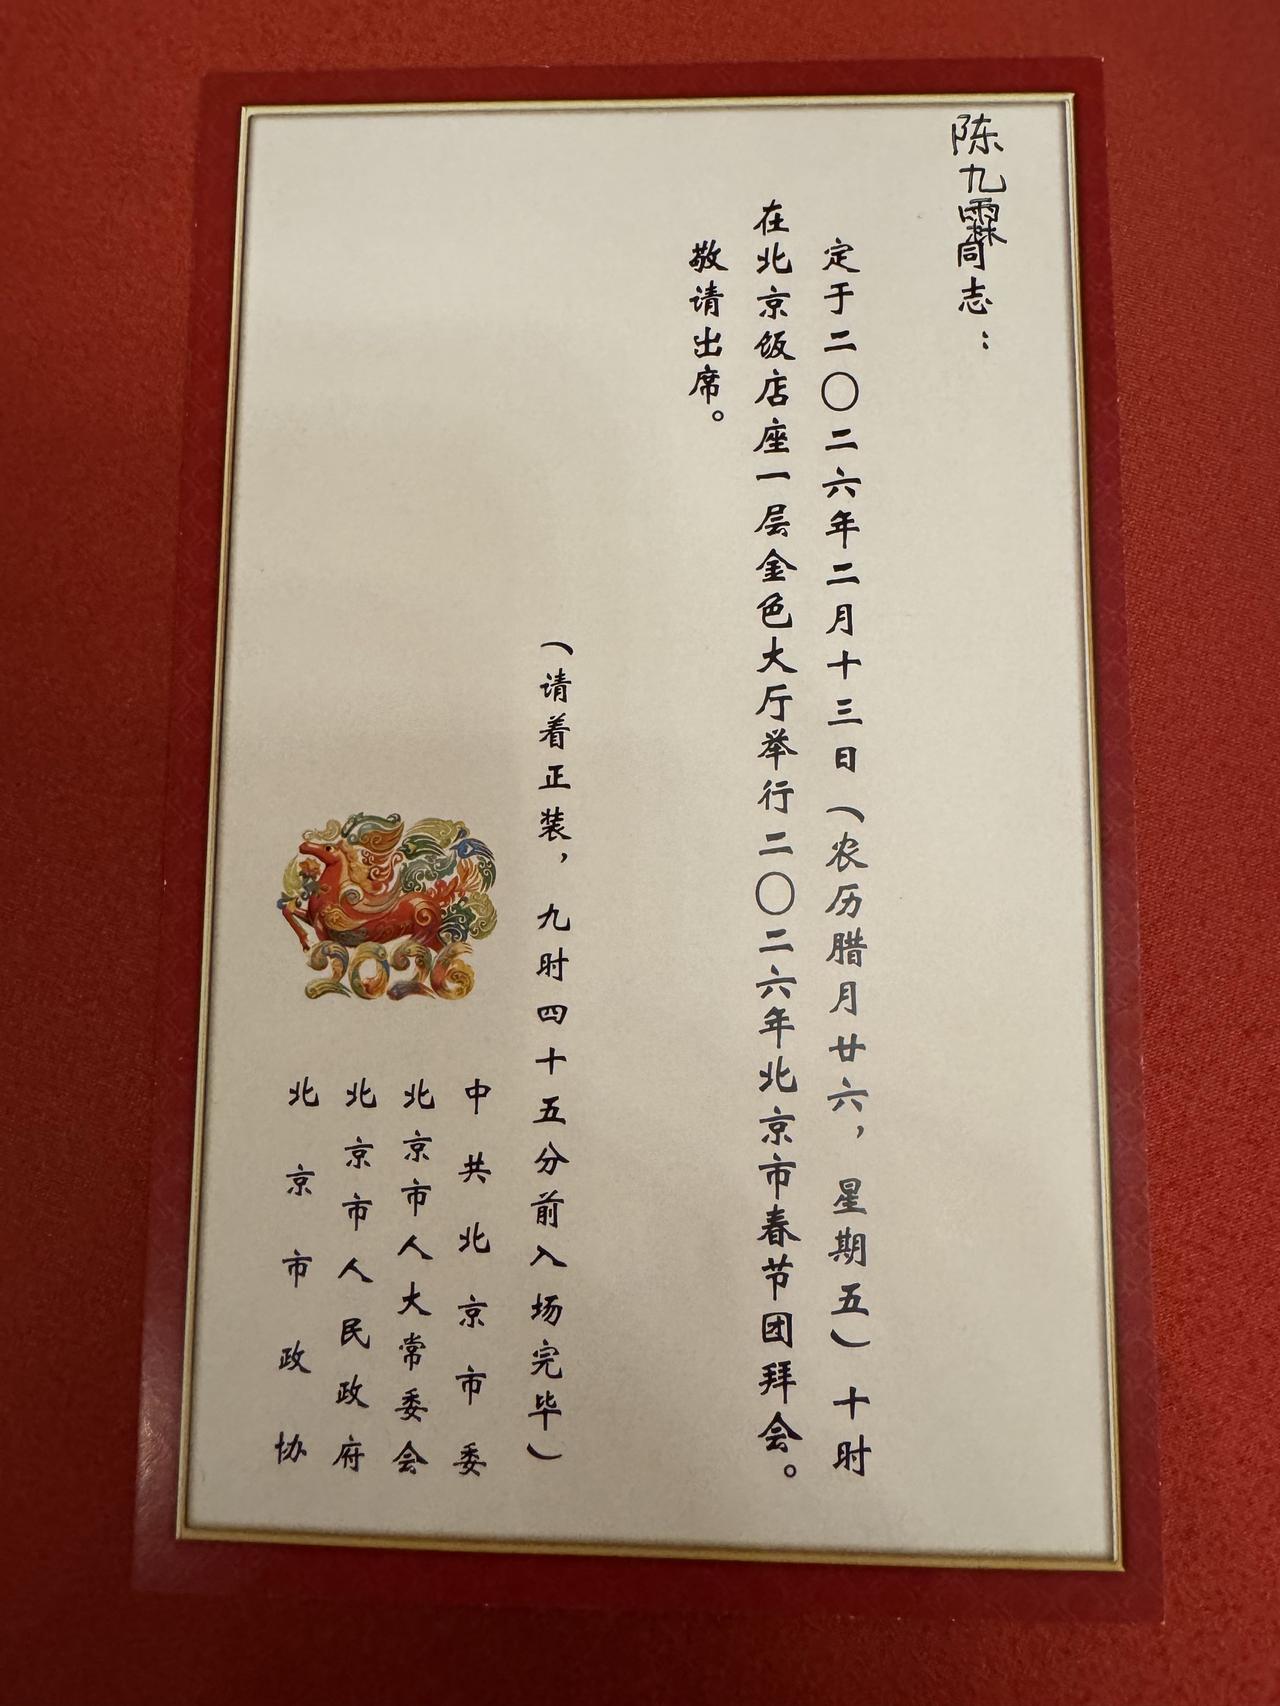 陈九霖同志：
定于二〇二六年二月十三日（农历腊月廿六，星期五）十时
在北京饭店座一层金色大厅举行二〇二六年北京市春节团拜会。
敬请出席。
（请着正装，九时四十五分前入场完毕）
中共北京市委
北京市人大常委会
北京市人民政府
北京市政协
2026